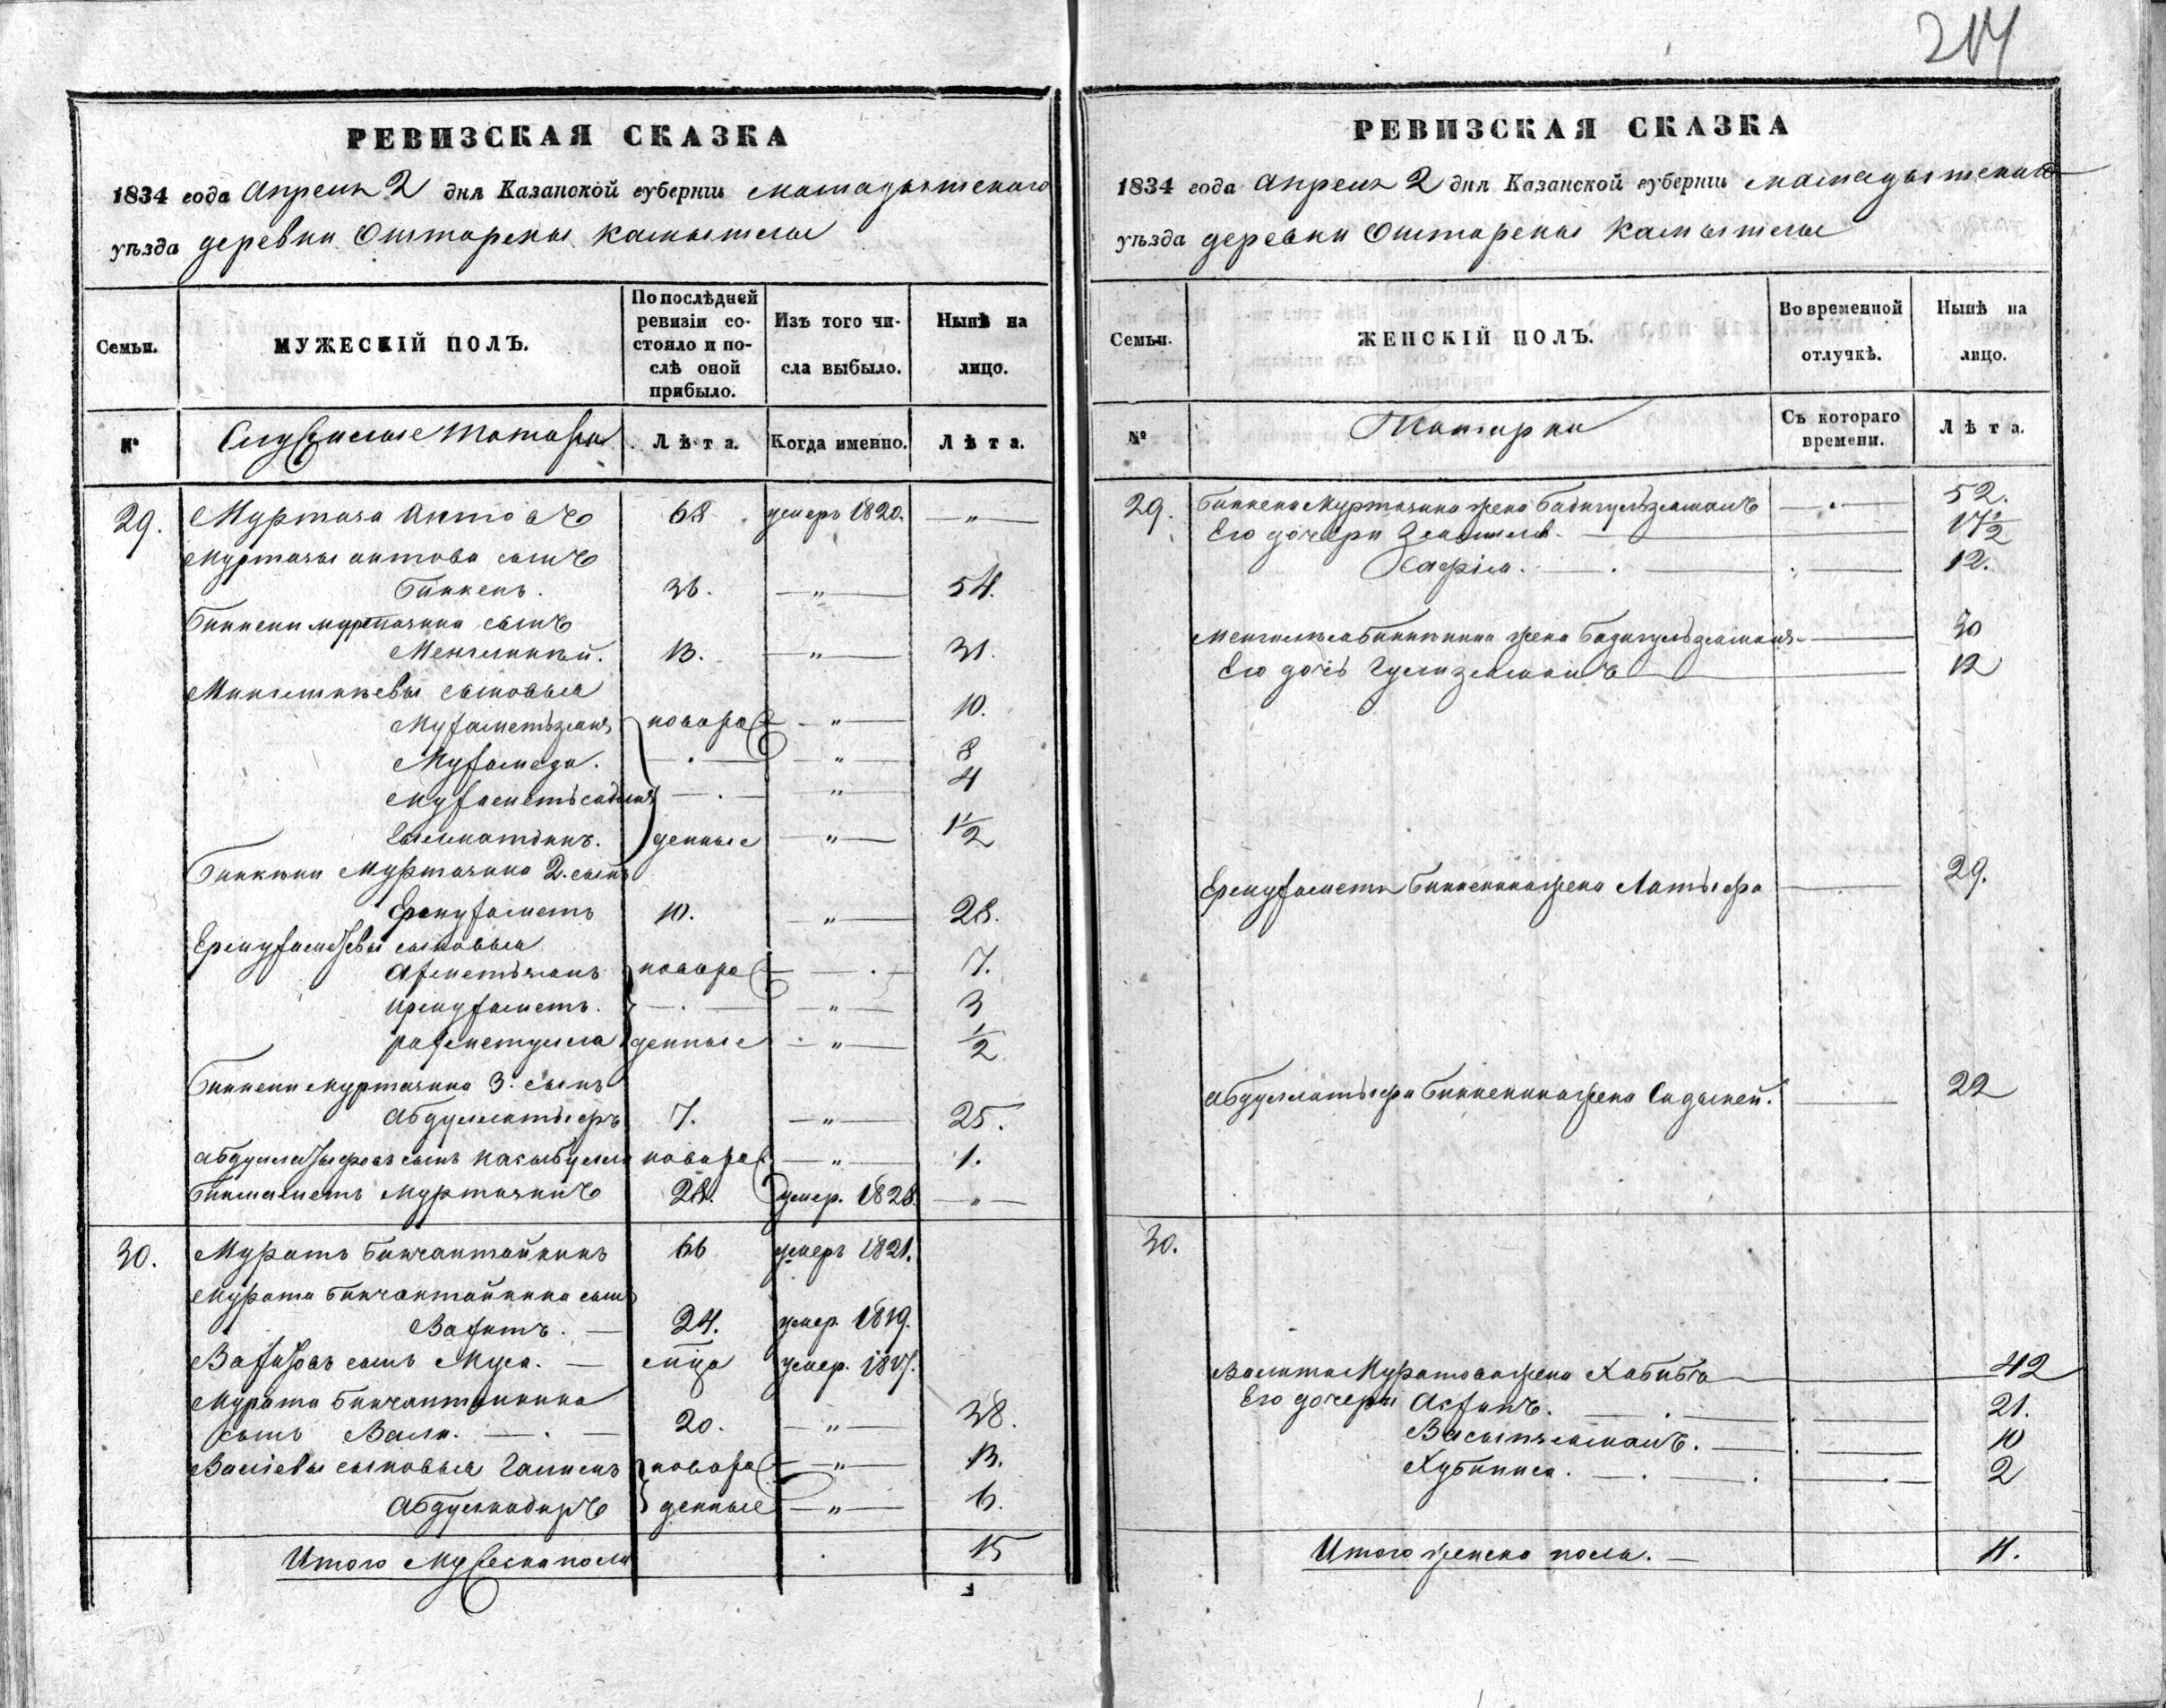 214
РЕВИЗСКАЯ СКАЗКА
1834 года Апреля 2 дня Казанской губерніи мамадышскаго
уѣзда деревни Ошторены камытлы
Семьи.
МУЖЕСКІЙ ПОЛЪ.
По послѣдней ревизіи состояло и послѣ оной прибыло.
Изъ того числа выбыло.
Нынѣ на лицо.
№
Служилые татары
Лѣта.
Когда именно.
Лѣта.
29. Муртаза Актовъ 68 умеръ 1820. — „ —
Муртазы актова сынъ
Биккень. 36. — „ — 54.
Биккени муртазина сынъ
Менгликѣй. 13. — „ — 31.
Мингликѣевы сыновья
Мухаметзянъ новорож — „ — 10.
Мухамеди. — . — — „ — 8
Мухаметсадыкъ — . — — „ — 4
денные — „ — 1 1/2
Биккени Муртазина 2. сынъ
Ермухаметъ 10. — „ — 28.
Ермухаметевы сыновья
Ахметзянъ новорож — . — 7.
Нрмухаметъ. — . — — „ — 3
рахметулла денные — „ — 1/2
Биккени муртазина 3. сынъ
Абдуллатыфъ 7. — „ — 25.
абдуллатыфовъ сынъ новорож — „ — 1.
Бикмаметь Муртазинъ 28. умер. 1828. — „ —
30. Муратъ Бикчантайкинъ 66 умеръ 1821.
Мурата Бикчантайкина сынъ
Вахитъ. — 24. умер. 1819.
Вахитовъ сынъ Муса. — м-ца умер. 1817.
Мурата Бикчантайкина
сынъ Вали. — . — 20. — „ — 38.
Валіевы сыновья Галкеъ новорож — „ — 13.
Абдулкадыръ денные — „ — 6.
Итого мужеска пола 15
РЕВИЗСКАЯ СКАЗКА
1834 года апреля 2 дня Казанской губерніи мамадышскаго
уѣзда деревни Ошторены камытлы
Семьи.
ЖЕНСКІЙ ПОЛЪ.
Во временной отлучкѣ.
Нынѣ на лицо.
№
Татарки
Съ котораго времени.
Лѣта.
29. Биккеня Муртазина жена Бадигульзямалъ — . — 52.
Его дочери 17 1/2
Сафіа. — . — 12.
Менгликѣя Биккѣнина жена Бадигульзямалъ — 30
Его дочь Гулизямалъ — 12
Ермухаметя Биккенина жена Латыфа — . — 29.
абдуллатыфа Биккенина жена Садыкей. — . — 22
30.
Валита Муратова жена Хабиба — 42
Его дочери Асхапъ. — . — 21.
Васылзямалъ. — . — 10
Хубниса. — . — 2
Итого женска пола. — 11.